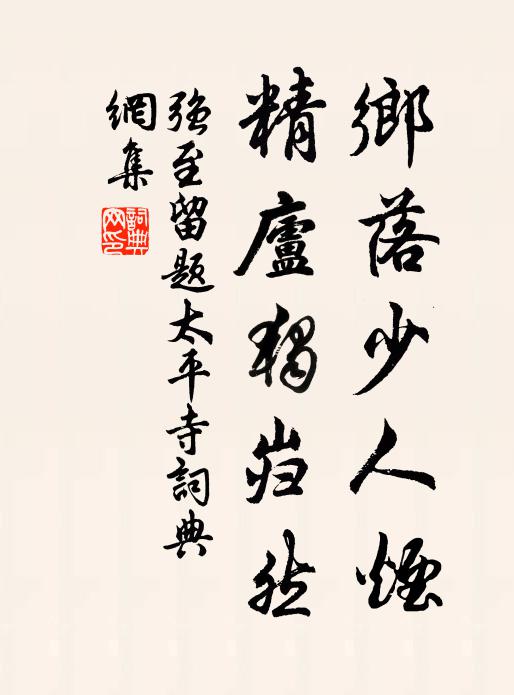 鄉落少人煙
精廬獨岿然
強至留題太平寺詞典
網集
詞典
网印